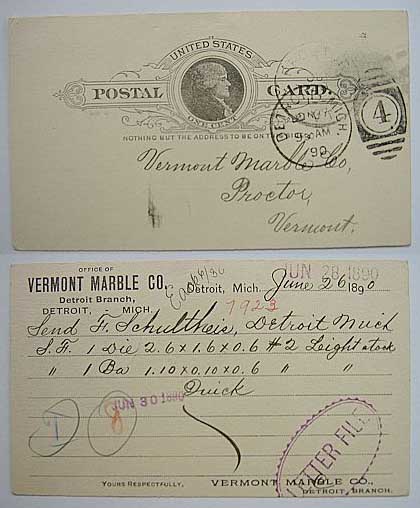 UNITED STATES
POSTAL CARD.
ONE CENT
NOTHING BUT THE ADDRESS TO BE ON THIS SIDE
DETROIT, MICH.
AM
90
4
Vermont Marble Co,
Proctor,
Vermont.
OFFICE OF
VERMONT MARBLE CO.
Detroit Branch,
DETROIT, MICH.
JUN 28 1890
Detroit, Mich. June 26 1890
1923
Send F. Schultheis, Detroit Mich
S.F. 1 Die 2.6 x 1.6 x 0.6 #2 Light stock
" 1 Ba 1.10 x 0.10 x 0.6 " "
Quick
JUN 30 1890
I
8
LETTER FILE
YOURS RESPECTFULLY, VERMONT MARBLE CO.,
DETROIT BRANCH.